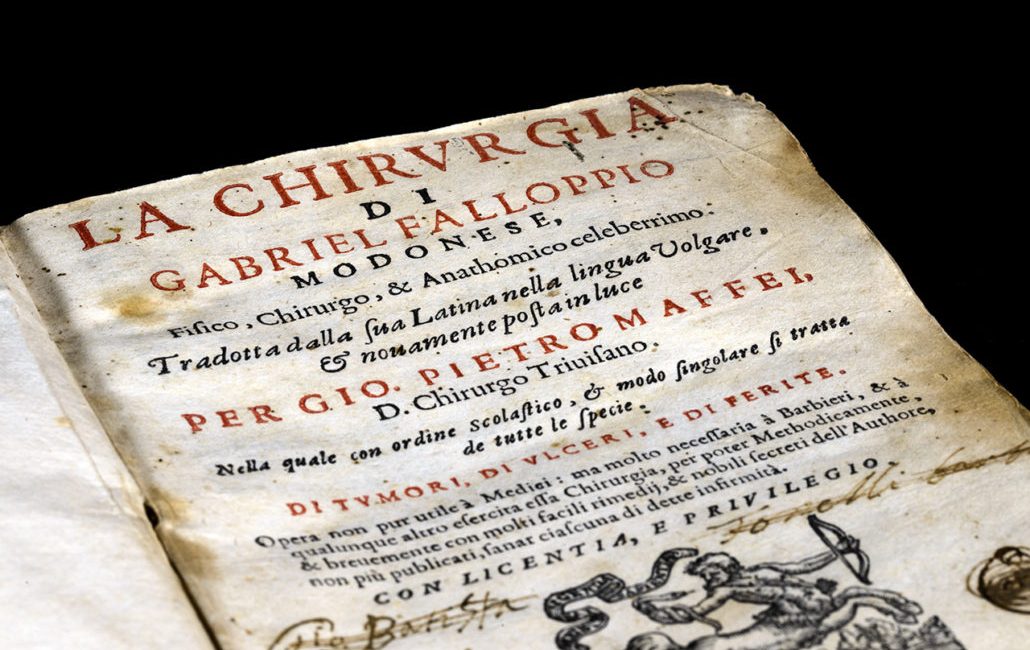 LA CHIRVRGIA
DI
GABRIEL FALLOPPIO
MODONESE,
Fiſico, Chirurgo, & Anathomico celeberrimo:
Tradotta dalla ſua Latina nella lingua Volgare.
& nouamente poſta in luce
PER GIO. PIETRO MAFFEI,
D. Chirurgo Triuiſano.
Nella quale con ordine scolaſtico, & modo ſingolare ſi tratta
de tutte le ſpecie:
DI TVMORI, DI VLCERI, E DI FERITE.
Opera non pur utile à Medici: ma molto neceſſaria à Barbieri, & à
qualunque altro eſercita eſſa Chirurgia, per poter Methodicamente,
& breuemente con molti facili rimedij, & nobili ſecreti dell'Authore,
non più publicati, ſanar ciaſcuna di dette infirmità.
CON LICENTIA, E PRIVILEGIO
Gio Batiſta